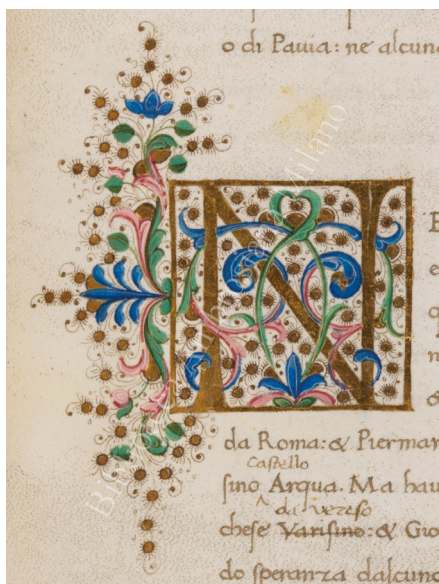 o di Pauia: ne alcun
N
E
e
q
n
&
da Roma: & Piermar
Castello
sino Arqua. Ma hau
da vereso
chese Varisino: & Gio
do speranza dalcuna